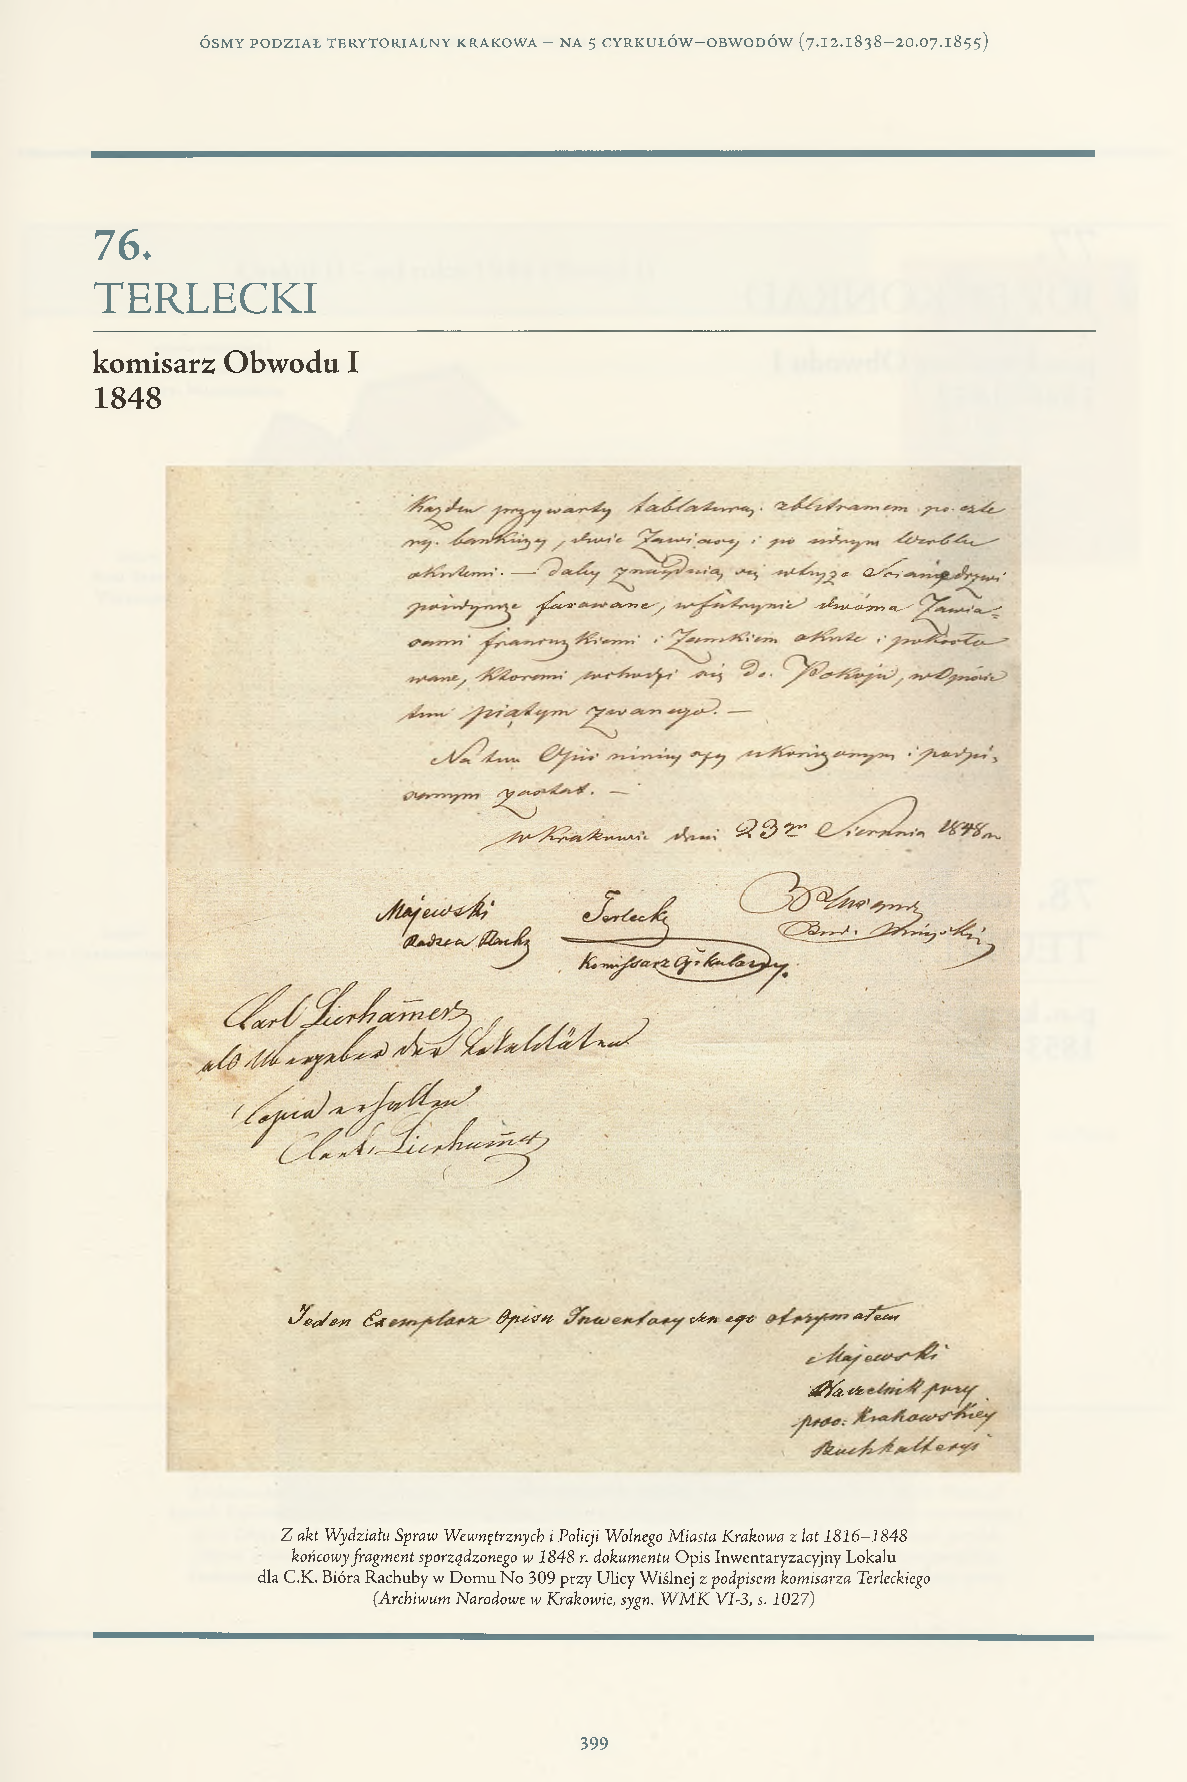 ÓSMY PODZIAŁ TERYTORIALNY KRAKOWA – NA 5 CYRKUŁÓW–OBWODÓW (7.12.1838–20.07.1855)
76.
TERLECKI
komisarz Obwodu I
1848
Każden przywarty tablaturą zblitramem po czte
ry bankizy, dwie Zawiasy i po iednym Wreblu
okutemi. — daley znayduią się wteyże Scianie drzwi
poiedyncze fasowane, wfutrynie dwóma Zawia-
sami francuzkiemi i Zamkiem okute i pokosto
wane, ktoremi wchodzi się do Pokoju, wOpisie
tem piątym zwanego. —
Na tem Opis ninieyszy ukończonym i podpi-
sanym został. —
w Krakowie dnia 23go Sierpnia 1848 r.
Majewski
Radzca Rach
Terlecki
Komissarz Cyrkularny.
Carl Lierham̄er
als Übergeber der Lokalitäten
Copia erhalten
Carl Lierham̄er
Jeden Exemplarz Opisu Inwentarycznego otrzymałem
Majewski
Naczelnik przy
prow: Krakowskiey
Buchhalteryi
Z akt Wydziału Spraw Wewnętrznych i Policji Wolnego Miasta Krakowa z lat 1816–1848
końcowy fragment sporządzonego w 1848 r. dokumentu Opis Inwentaryzacyjny Lokalu
dla C.K. Bióra Rachuby w Domu No 309 przy Ulicy Wiślnej z podpisem komisarza Terleckiego
(Archiwum Narodowe w Krakowie, sygn. WMK VI-3, s. 1027)
399